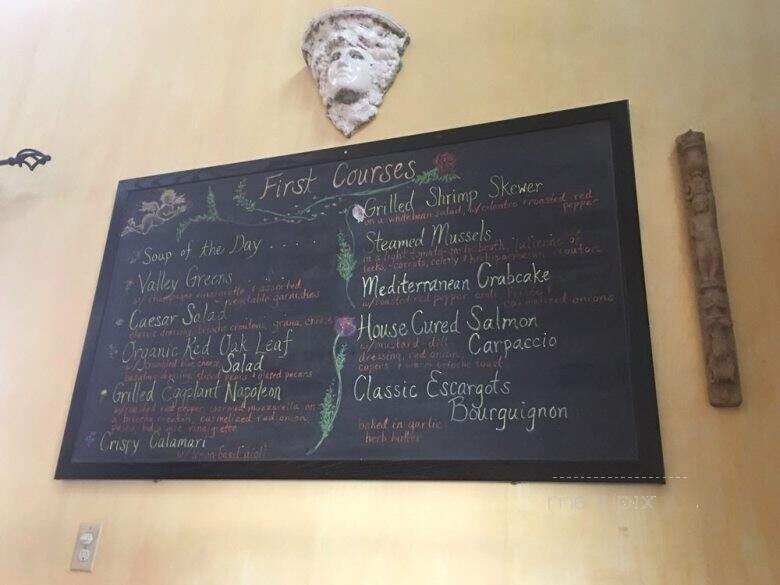 First Courses
Soup of the Day ......
Valley Greens
w/ champagne vinaigrette & assorted
vegetable garnishes
Caesar Salad
classic dressing, brioche croutons, grana cheese
Organic Red Oak Leaf
Salad
w/ crumbled blue cheese
balsamic dressing, sliced pears & glazed pecans
Grilled Eggplant Napoleon
w/ roasted red pepper, warmed mozzarella on
a brioche crouton, carmelized red onion,
pesto, balsamic vinaigrette
Crispy Calamari
w/ lemon basil aioli
Grilled Shrimp Skewer
on a white bean salad, w/ cilantro & roasted red
pepper
Steamed Mussels
in a light tomato-
leeks, carrots, celery &
Mediterranean Crabcake
w/ roasted red pepper
carmelized onions
House Cured Salmon
Carpaccio
w/ mustard-dill
dressing, red onion,
capers & warm brioche toast
Classic Escargots
Bourguignon
baked in garlic
herb butter